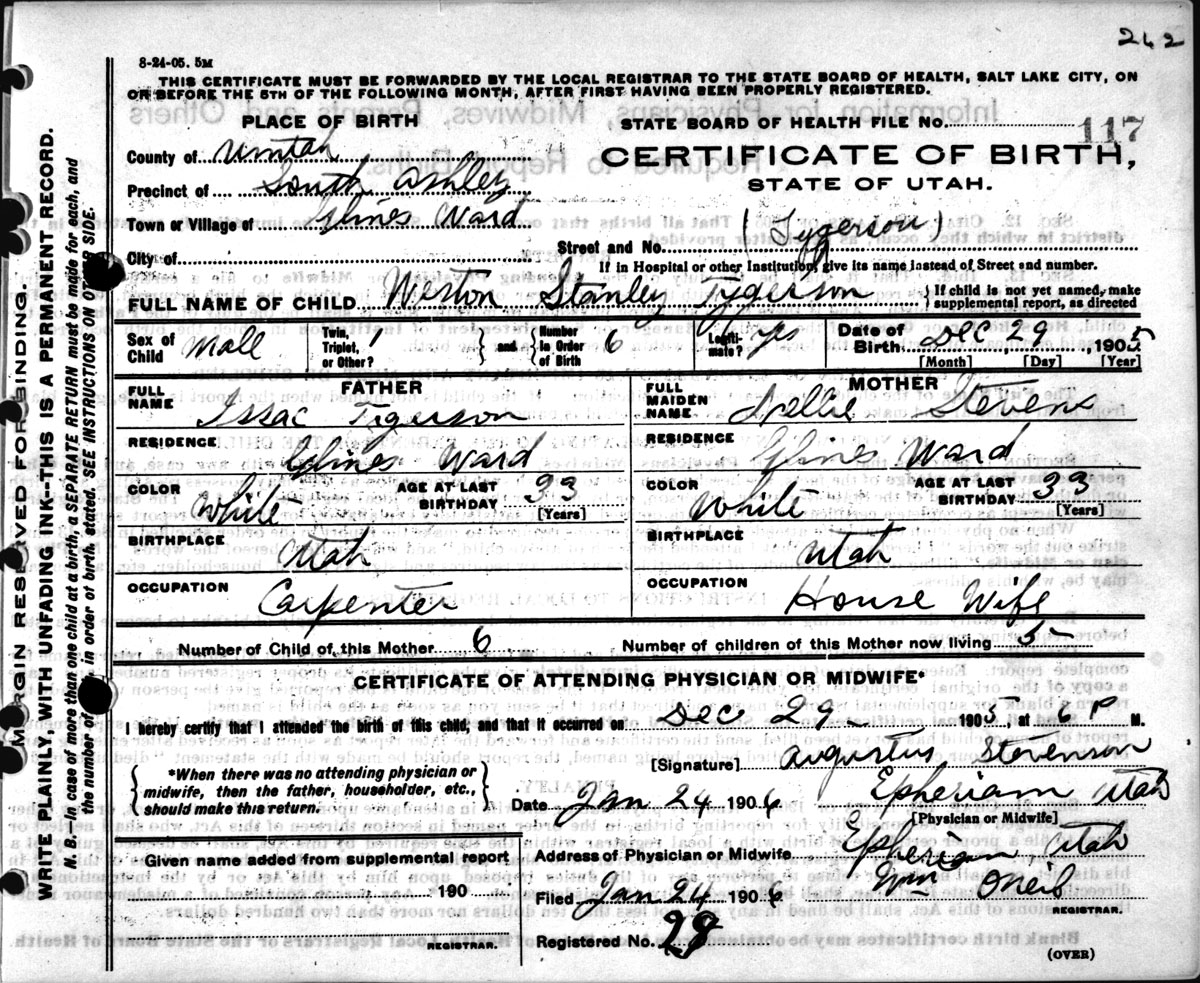 262
8-24-05. 5M
THIS CERTIFICATE MUST BE FORWARDED BY THE LOCAL REGISTRAR TO THE STATE BOARD OF HEALTH, SALT LAKE CITY, ON
OR BEFORE THE 5TH OF THE FOLLOWING MONTH, AFTER FIRST HAVING BEEN PROPERLY REGISTERED.
PLACE OF BIRTH
STATE BOARD OF HEALTH FILE No. 117
County of Uintah
CERTIFICATE OF BIRTH,
STATE OF UTAH.
Precinct of South Ashley
Town or Village of Glines Ward
(Tygerson)
City of
Street and No.
If in Hospital or other Institution, give its name instead of Street and number.
FULL NAME OF CHILD Weston Stanley Tygerson
{If child is not yet named, make
supplemental report, as directed
Sex of Child Mall
Twin, Triplet, or Other? 1
and
Number in Order of Birth 6
Legiti-mate? yes
Date of Birth Dec 29, 1905
[Month] [Day] [Year]
FATHER
FULL NAME Issac Tigerson
RESIDENCE Glines Ward
COLOR White
AGE AT LAST BIRTHDAY 33
[Years]
BIRTHPLACE Utah
OCCUPATION Carpenter
MOTHER
FULL MAIDEN NAME Nellie Stevens
RESIDENCE Glines Ward
COLOR White
AGE AT LAST BIRTHDAY 33
[Years]
BIRTHPLACE Utah
OCCUPATION House Wife
Number of Child of this Mother 6
Number of children of this Mother now living 5
CERTIFICATE OF ATTENDING PHYSICIAN OR MIDWIFE*
I hereby certify that I attended the birth of this child, and that it occurred on Dec 29 1905, at 6 P M.
[Signature] Augustus Stevenson
*When there was no attending physician or
midwife, then the father, householder, etc.,
should make this return.
Date Jan 24 1906
Epheriam Utah
[Physician or Midwife]
Address of Physician or Midwife Epheriam Utah
Given name added from supplemental report
190
REGISTRAR.
Filed Jan 24 1906
Wm
REGISTRAR.
Registered No. 28
(OVER)
MARGIN RESERVED FOR BINDING.
WRITE PLAINLY, WITH UNFADING INK--THIS IS A PERMANENT RECORD.
N. B.—In case of more than one child at a birth, a SEPARATE RETURN must be made for each, and
the number of in order of birth stated. SEE INSTRUCTIONS ON OTHER SIDE.